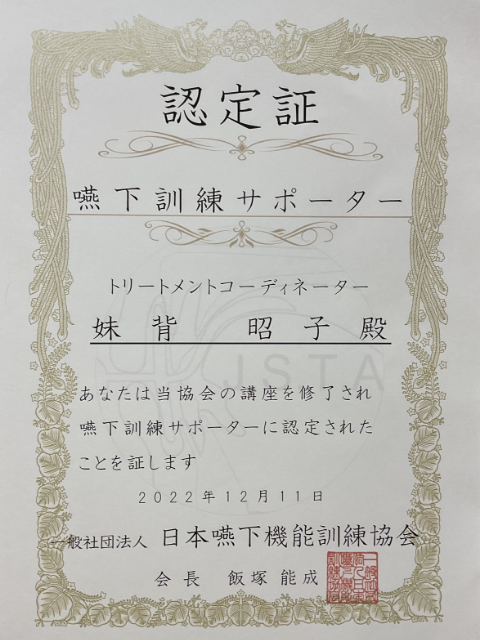 認定証
嚥下訓練サポーター
トリートメントコーディネーター
妹背 昭子殿
JSTA
あなたは当協会の講座を修了され
嚥下訓練サポーターに認定された
ことを証します
2022年12月11日
一般社団法人 日本嚥下機能訓練協会
会長 飯塚能成